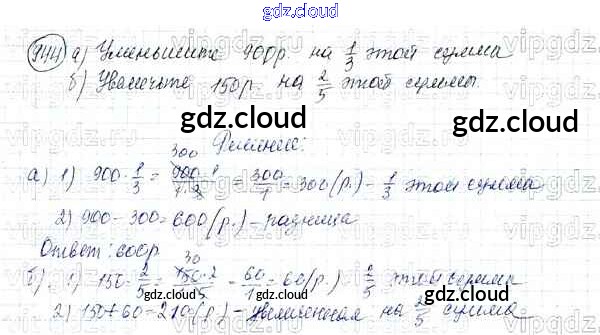 gdz.cloud
944 а) Уменьшите 900р. на 1/3 этой сумма
б) Увеличьте 150р на 2/5 этой суммы.
gdz.cloud gdz.cloud
Решение:
а) 1) 900 · 1/3 = 900 · 1 / 1 · 3 = 300/1 = 300 (р.) – 1/3 этой сумма
2) 900 – 300 = 600 (р.) – разница
gdz.cloud
Ответ: 600р.
б) 1) 150 · 2/5 = 150 · 2 / 5 = 60/1 = 60 (р.) 1/5 этой сумма
2) 150 + 60 = 210 (р.) – увеличенная на 2/5 сумма.
gdz.cloud gdz.cloud